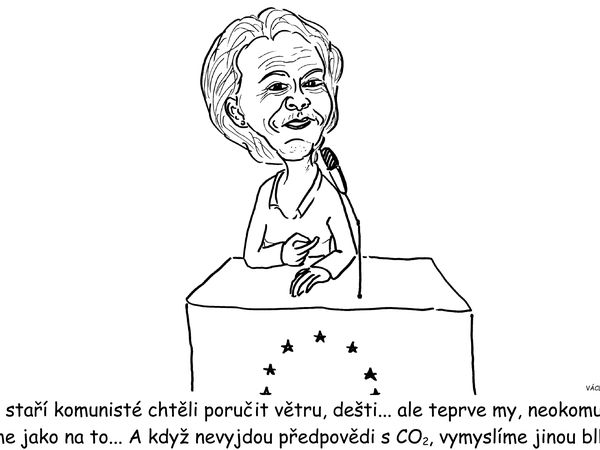 VÁCL
staří komunisté chtěli poručit větru, dešti... ale teprve my, neokomu
ne jako na to... A když nevyjdou předpovědi s CO₂, vymyslíme jinou blb